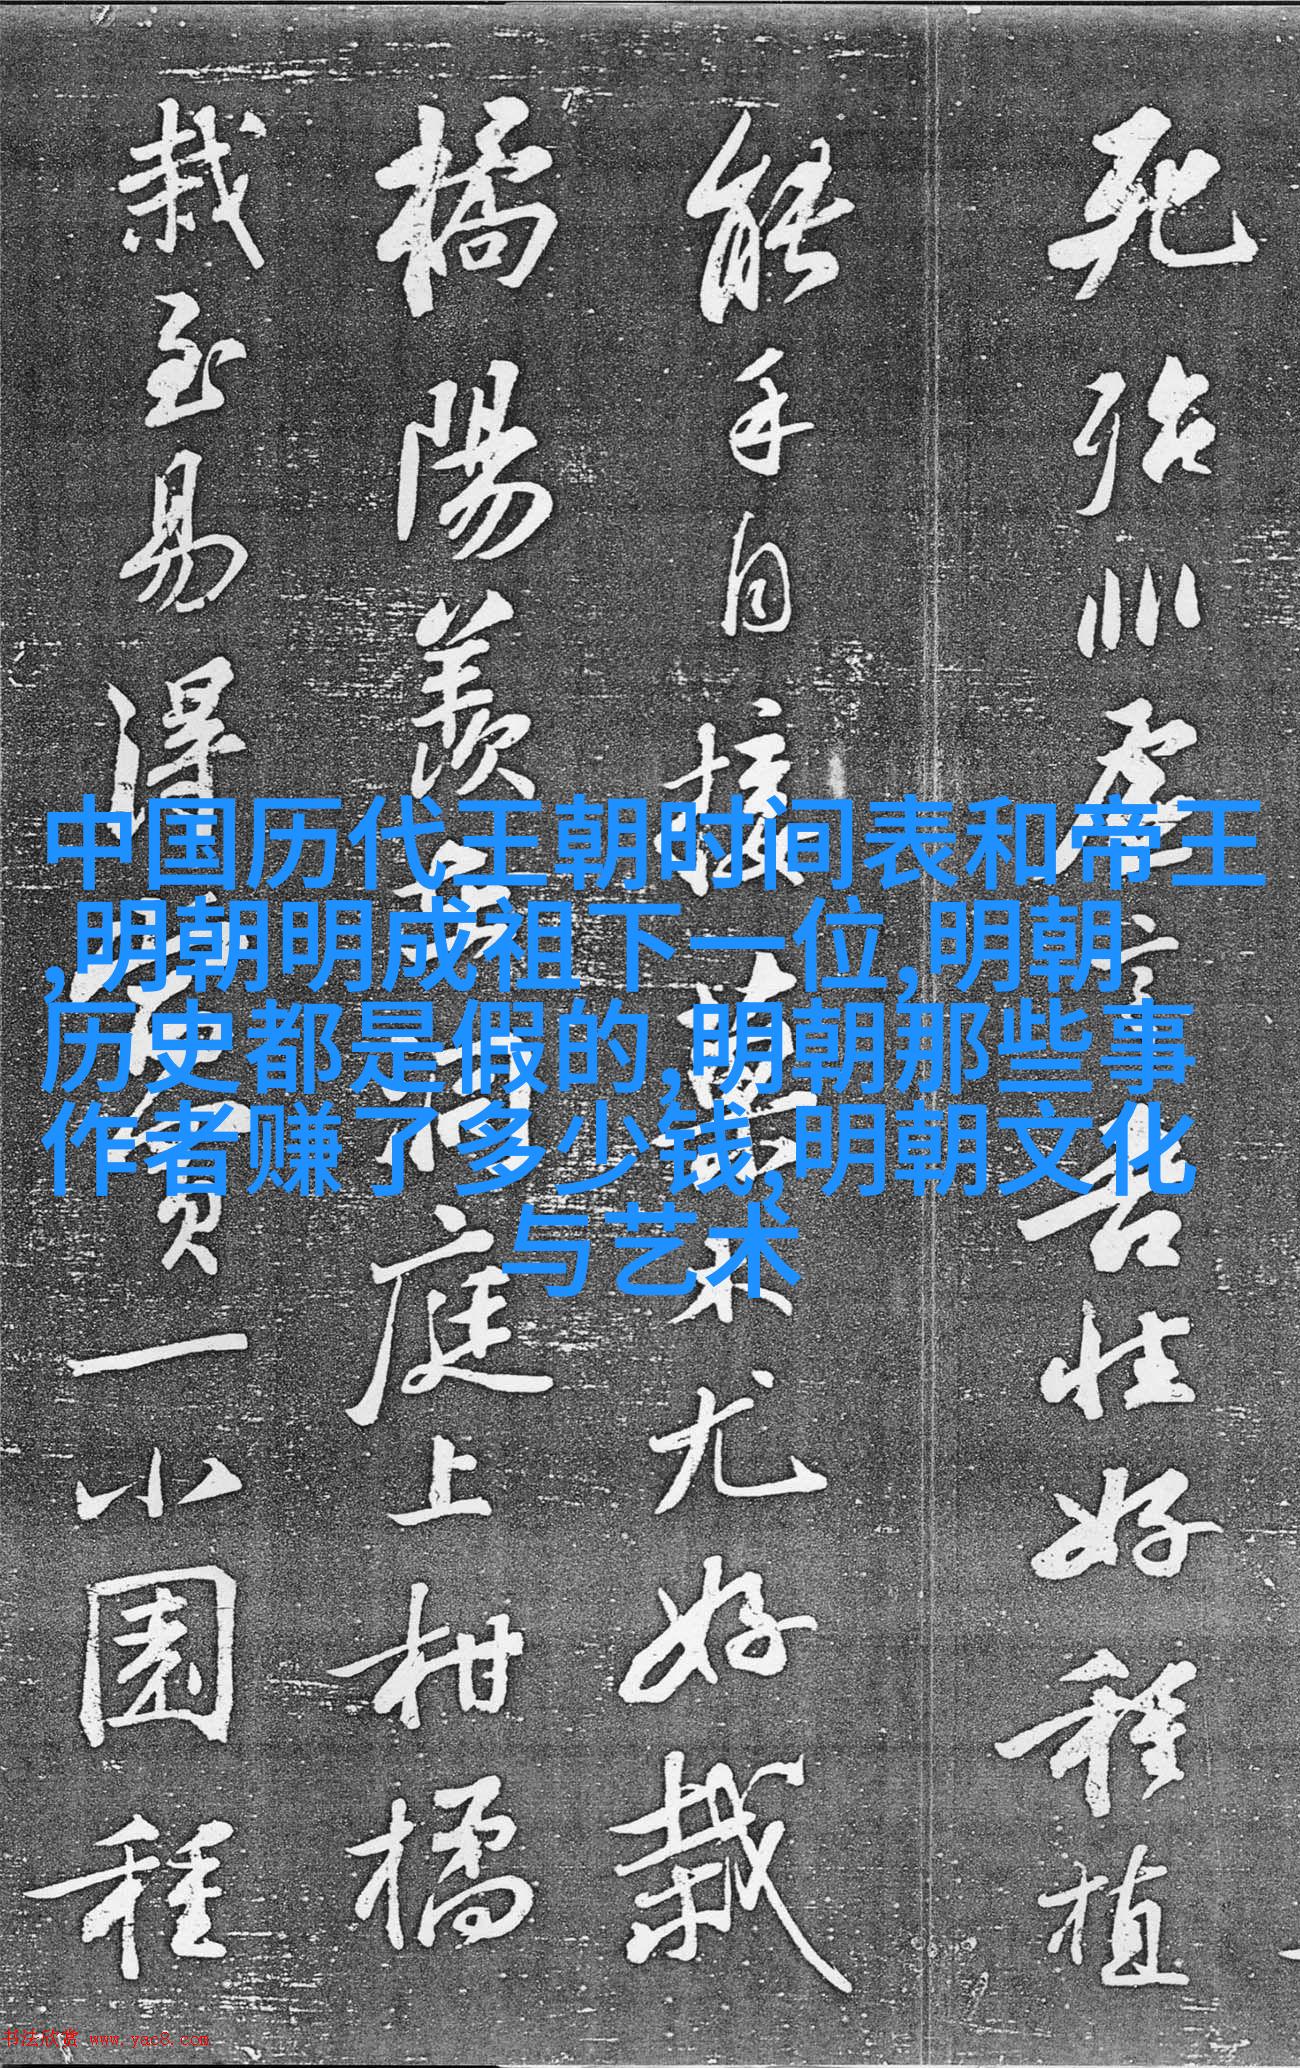 死殆非虛言吾性好種植
能手自接菓木尤好栽
橘陽羨在洞庭上柑橘
栽至易得當買一小園種
中国历代王朝时间表和帝王
,明朝明成祖下一位,明朝
历史都是假的,明朝那些事
作者赚了多少钱,明朝文化
与艺术
书法欣赏 www.yac8.com